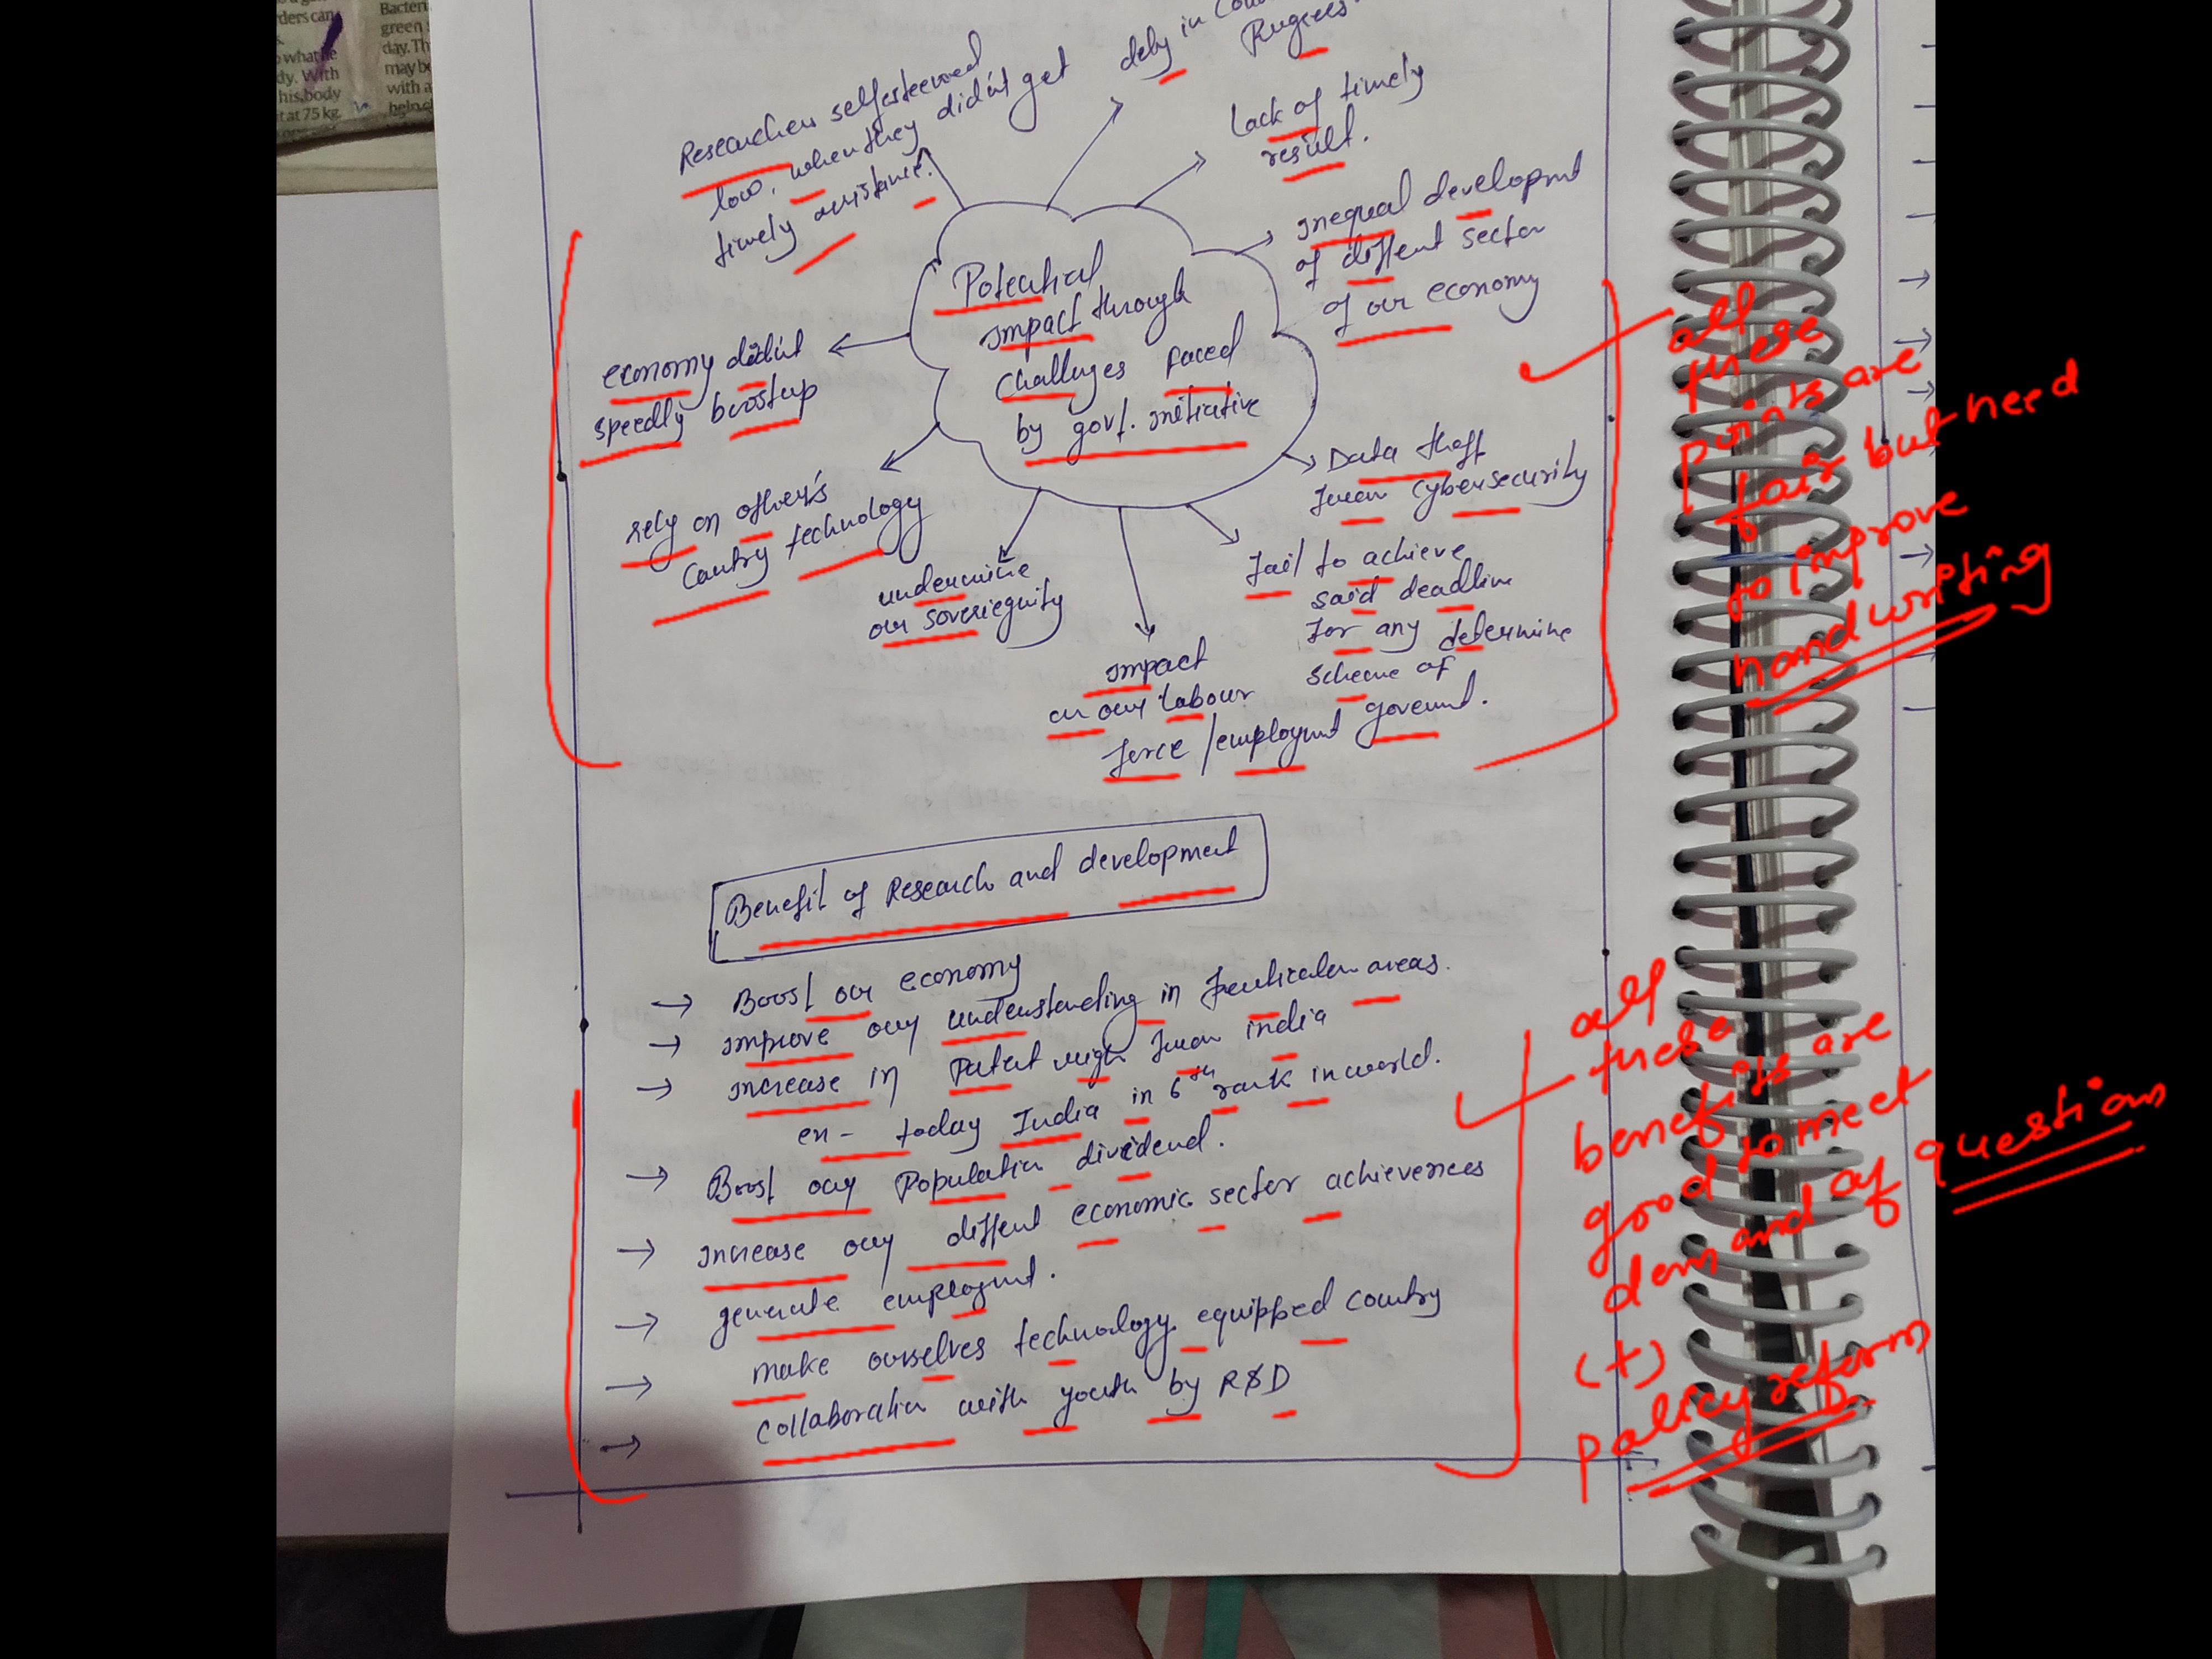 ders can
what he
dy. With
his body
at 75 kg.
Bacteri
green
day. Th
may be
with a
dely in
Progress.
Researchers selfesteemed
low, when they didn't get
timely assistance.
Lack of timely
result.
Inequal developmt
of diffent sector
of our economy
Potential
Impact through
Challenges faced
by govt. initiative
economy didn't
speedly boostup
rely on other's
Country technology
undermine
our soveriegnity
Impact
on our labour
force / employmt
Fail to achieve
said deadline
for any determine
scheme of
govermt.
Data theft
from cybersecurity
all
these
points are
fair but need
to improve
handwriting
Benefit of Research and development
→ Boost our economy
→ improve our understanding in particular areas.
→ increase in Patent from india
ex- today India in 6th rank in world.
→ Boost our Population dividend.
→ increase our diffent economic sector
→ generate employmt.
→ make ourselves technology equipped country
→ collaboration with youth by R&D
all
these
benefits are
good to meet
demand of question
(+)
policy reform